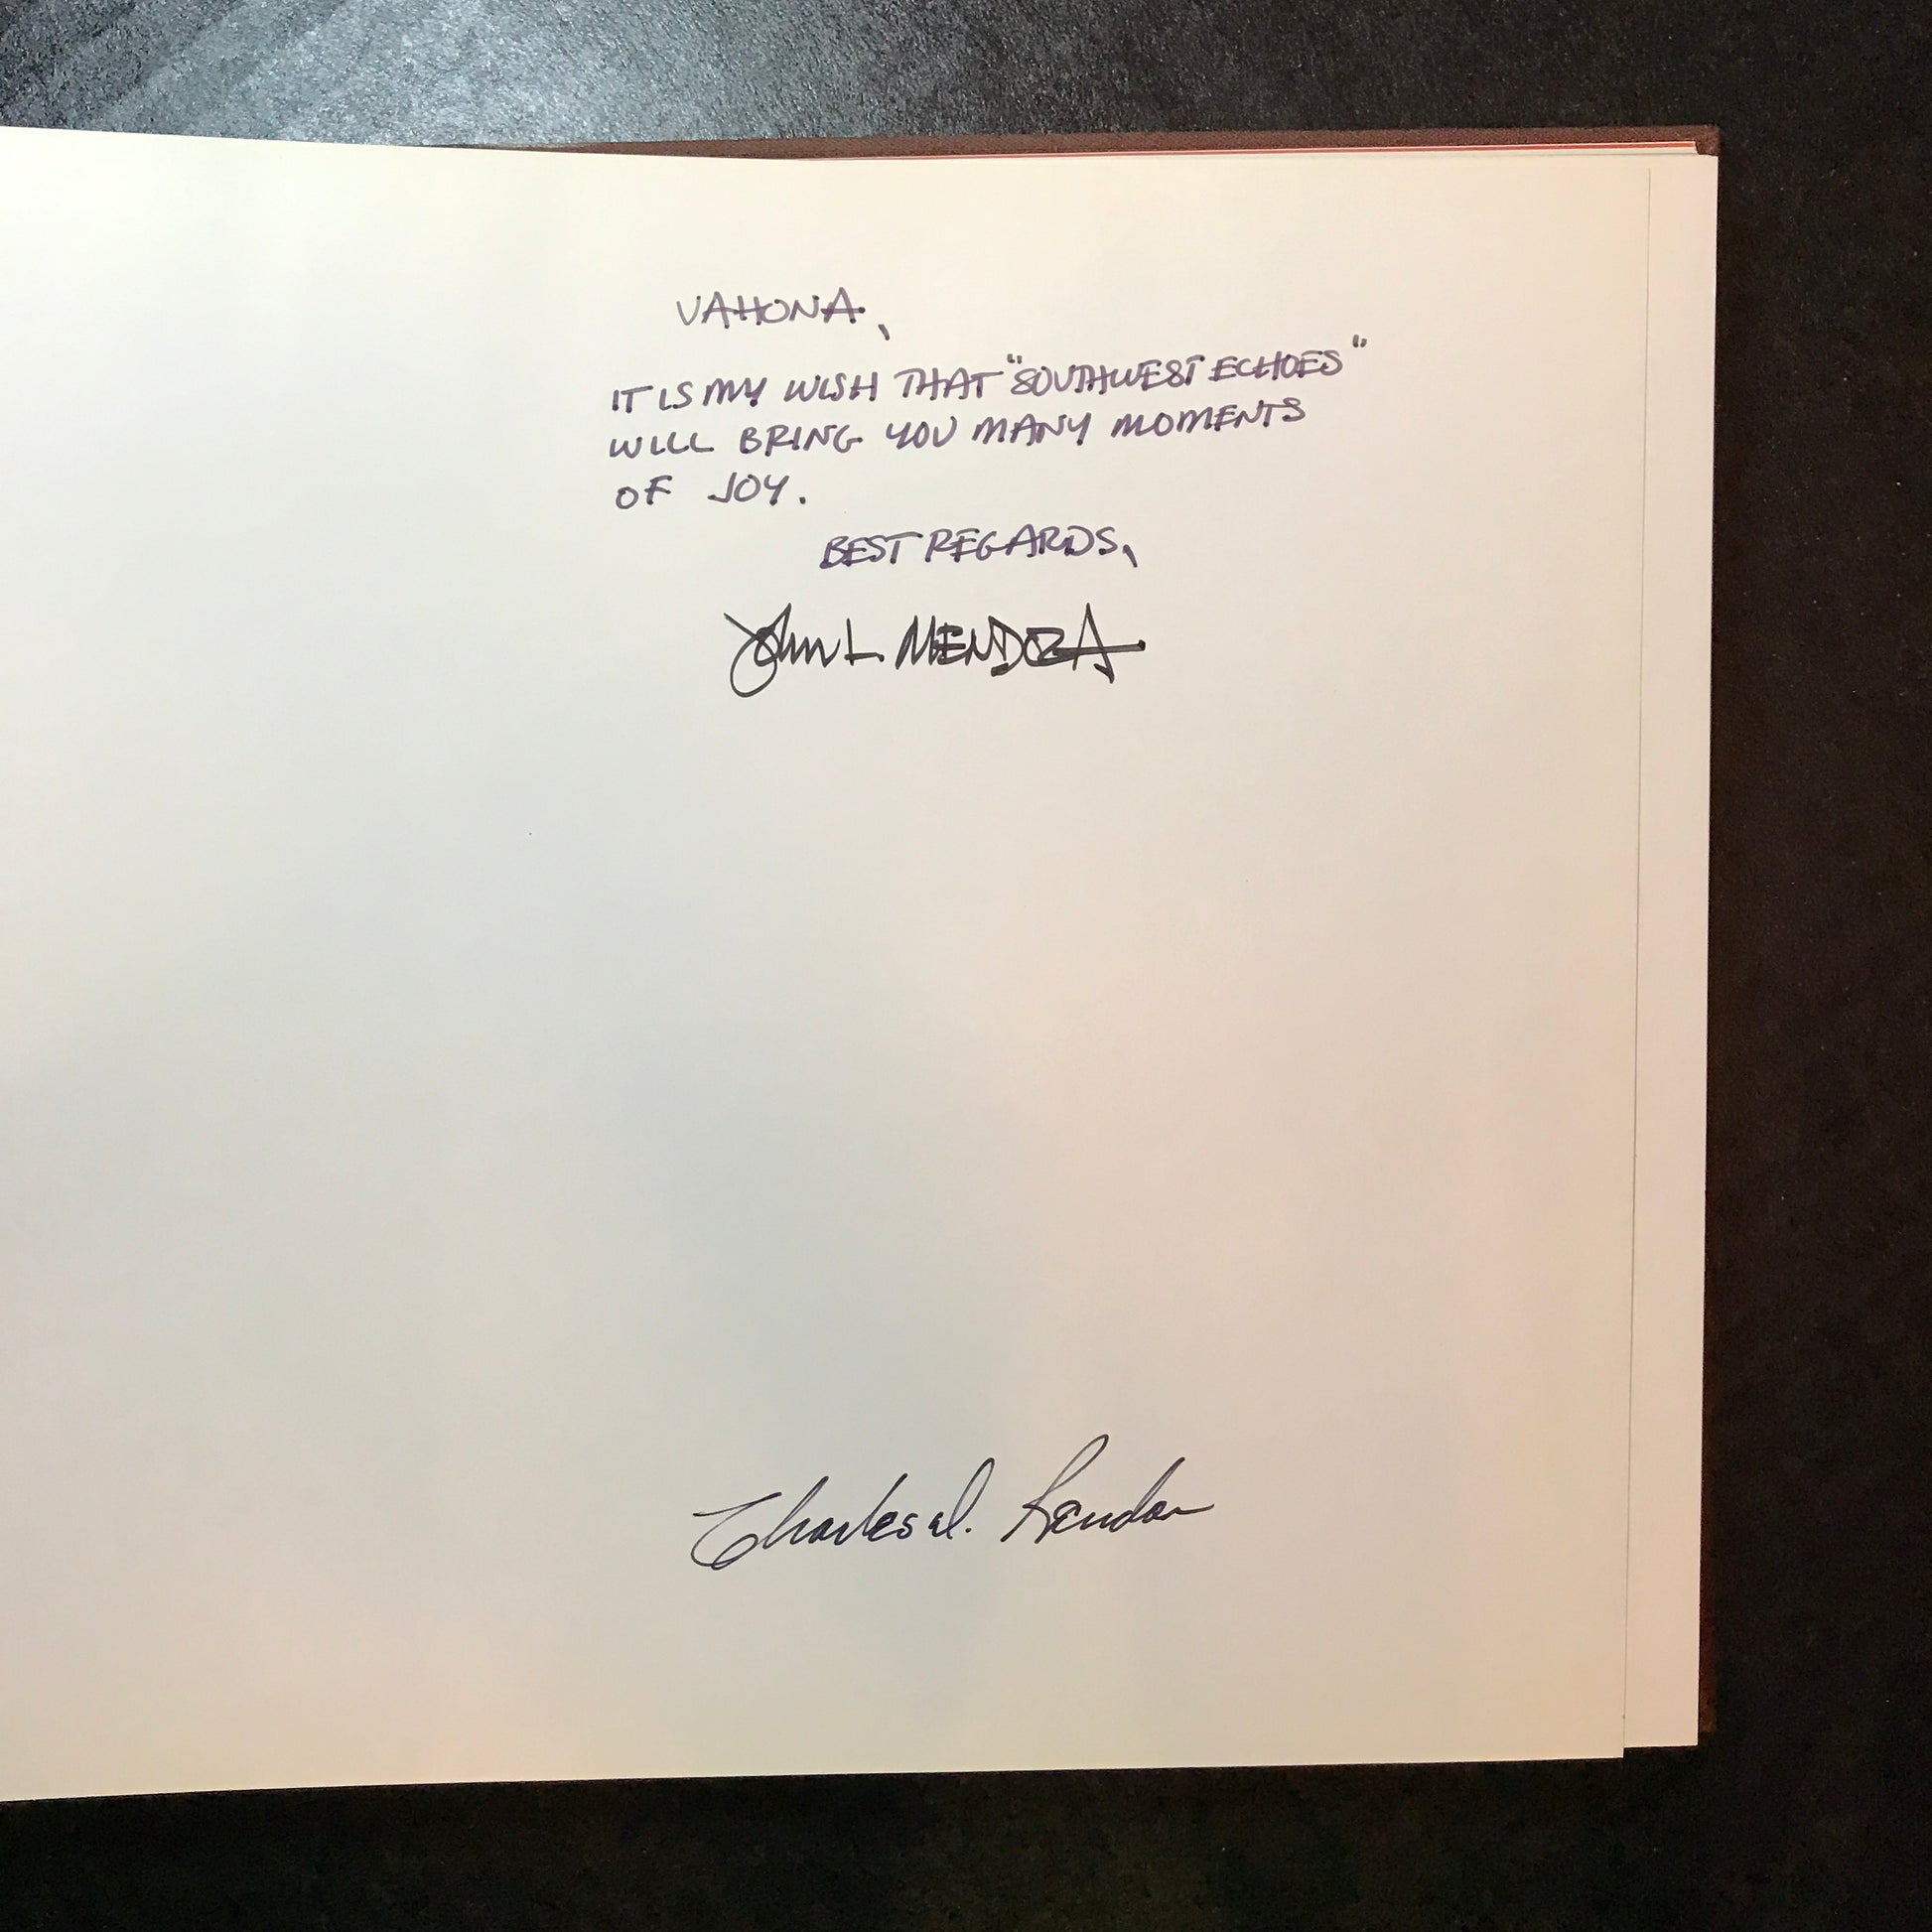 VAHONA,
IT IS MY WISH THAT "SOUTHWEST ECHOES"
WILL BRING YOU MANY MOMENTS
OF JOY.
BEST REGARDS,
JOHN L. MENDOZA
Charles D. Rendon